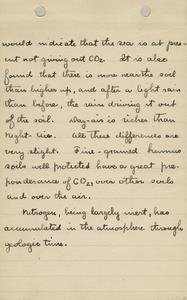 would indicate that the sea is at pres-
ent not giving out CO2. It is also
found that there is more near the soil
than higher up, and after a light rain
than before, the rain driving it out
of the soil. Day-air is richer than
night-air. All these differences are
very slight. Fine-grained humus
soils well protected have a great pre-
ponderance of CO2, over other soils
and over the air.
Nitrogen, being largely inert, has
accumulated in the atmosphere through
geologic time.